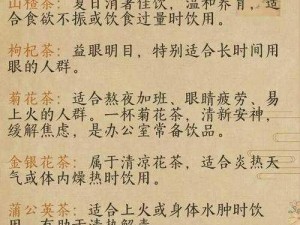 山楂茶：夏日消暑佳饮，温和养胃，适
合食欲不振或饮食过量时饮用。
枸杞茶：益眼明目，特别适合长时间用
眼的人群。
菊花茶：适合熬夜加班、眼睛疲劳、易
上火的人群。一杯菊花茶，清新安神，
缓解焦虑，是办公室常备饮品。
金银花茶：属于清凉花茶，适合炎热天
气或体内燥热时饮用。
蒲公英茶：适合上火或身体水肿时饮